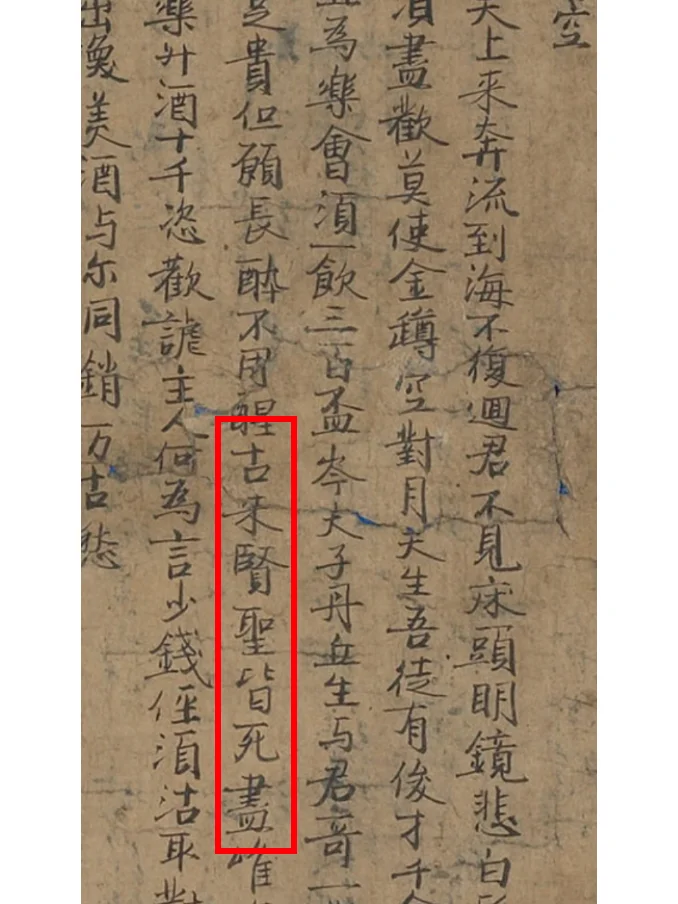 空
天上来奔流到海不復迴君不見床頭明鏡悲白
須盡歡莫使金罇空對月天生吾徒有俊才千
為樂會須一飲三百盃岑夫子丹丘生与君哥一
足貴但願長醉不用醒古来賢聖皆死盡唯
樂斗酒十千恣歡謔主人何為言少錢徑須沽取對
出換美酒与尔同銷万古愁